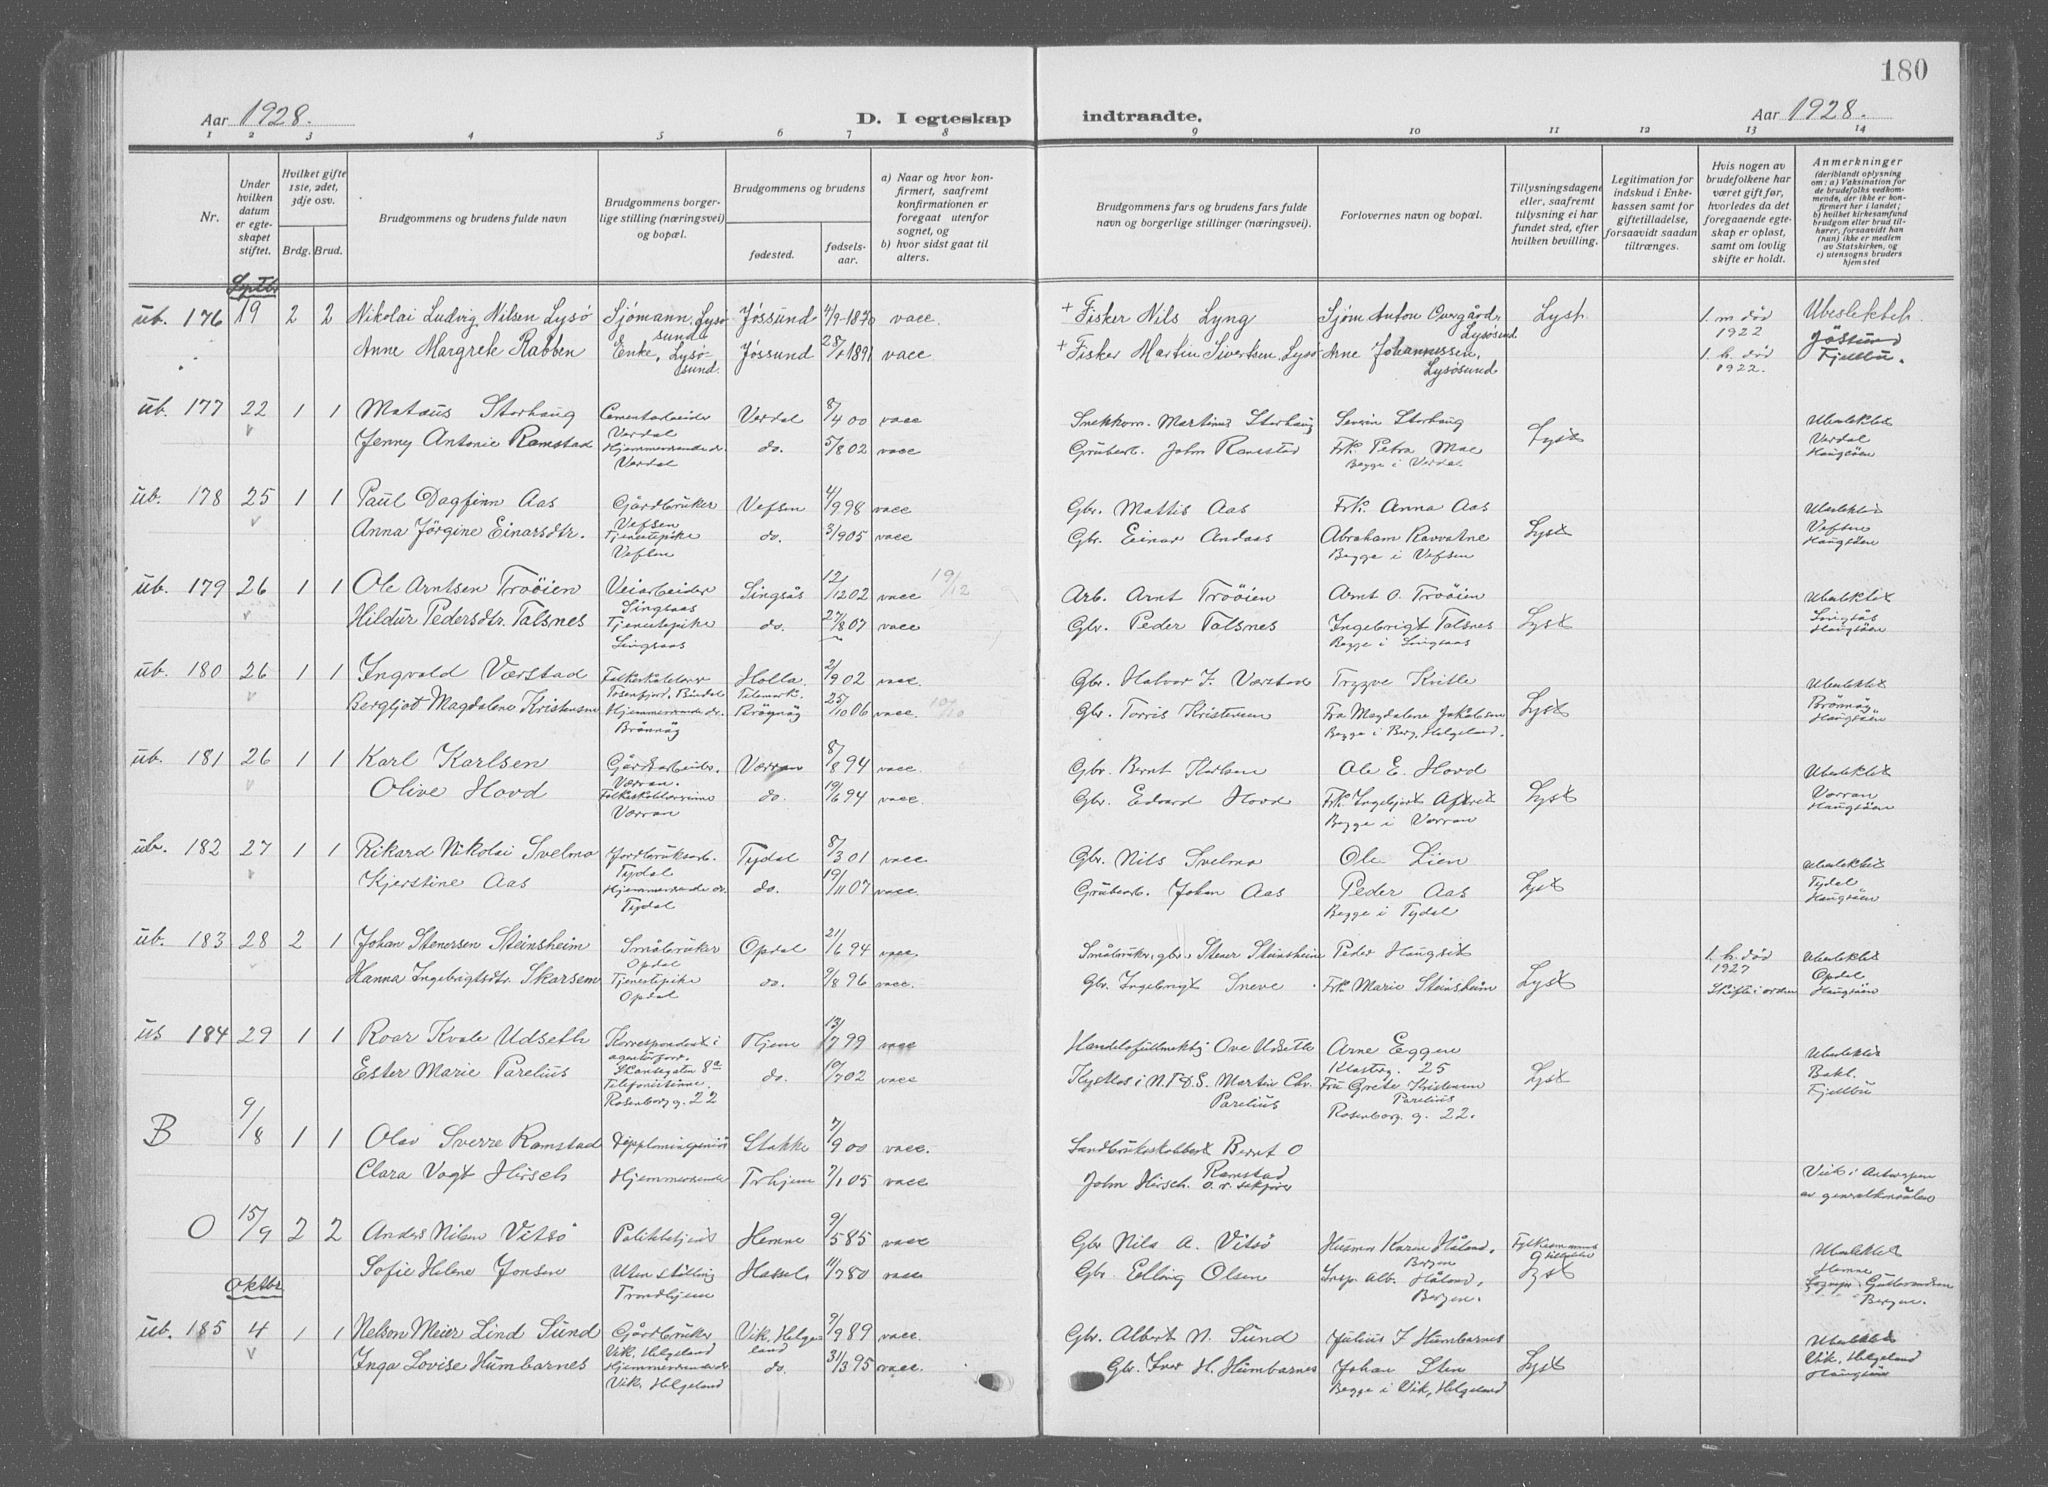 180
Aar 1928. D. I egteskap indtraadte. Aar 1928.
1 2 3 4 5 6 7 8 9 10 11 12 13 14
Nr.
Under hvilken datum er egteskapet stiftet.
Hvilket gifte 1ste, 2det, 3dje osv.
Brdg. Brud.
Brudgommens og brudens fulde navn
Brudgommens borgerlige stilling (næringsvei) og bopæl.
Brudgommens og brudens
fødested. fødselsaar.
a) Naar og hvor konfirmert, saafremt konfirmationen er foregaat utenfor sognet, og
b) hvor sidst gaat til alters.
Brudgommens fars og brudens fars fulde navn og borgerlige stillinger (næringsvei).
Forlovernes navn og bopæl.
Tillysningsdagene eller, saafremt tillysning ei har fundet sted, efter hvilken bevilling.
Legitimation for indskud i Enkekassen samt for giftetilladelse, forsaavidt saadan tiltrænges.
Hvis nogen av brudefolkene har været gift før, hvorledes da det foregaaende egteskap er opløst, samt om lovlig skifte er holdt.
Anmerkninger (deriblandt oplysning om: a) Vaksination for de brudefolks vedkommende, der ikke er konfirmert her i landet; b) hvilket kirkesamfund brudgom eller brud tilhører, forsaavidt han (hun) ikke er medlem av Statskirken, og c) utensogns bruders hjemsted
Septbr
ub. 176 19 2 2 Nikolai Ludvig Nilsen Lysø Sjømann, Lysøsund Jøssund 4/9-1870 vacc + Fisker Nils Lyng Sjøm Anton Overgård, Lysøsund Lyst 1. m død 1922 Ubeslektet
Anne Margrete Rabben Enke, Lysøsund. Jøssund 28/1 1891 vacc + Fisker Martin Sivertsen, Lysø Arne Johannessen, Lysøsund 1. h. død 1922. Jøssund Fjellbu.
ub. 177 22 1 1 Mataus Storhaug Cementarbeider Verdal Verdal 8/4 00 vacc Snekkerm. Martinus Storhaug Severin Storhaug Ubeslektet
Jenny Antonie Ramstad Hjemmeværende dr. Verdal do. 5/8 02 vacc Grubearb. John Ramstad Frk. Petra Moe Begge i Verdal Lyst Verdal Haugsöen
ub. 178 25 1 1 Paul Dagfinn Aas Gårdbruker Vefsen Vefsen 4/9 98 vacc Gbr. Mattis Aas Frk. Anna Aas Ubeslektet
Anna Jörgine Einarsdtr. Tjenestepike Vefsen do. 3/9 05 vacc Gbr. Einar Andaas Abraham Ravvatne Begge i Vefsen Lyst Vefsen Haugsöen
ub. 179 26 1 1 Ole Arntsen Troöien Veiarbeider Singsaas Singsås 12/12 02 vacc 19/12 Arb. Arnt Troöien Arnt O. Troöien Ubeslektet
Hildur Pedersdtr. Talsnes Tjenestepike Singsaas do. 27/8 07 vacc Gbr. Peder Talsnes Ingebrigt Talsnes Begge i Singsaas Lyst Singsås Haugsöen
ub. 180 26 1 1 Ingvald Værstad Folkeskolelærer Tosenfjord, Bindal Holla Telemark. 2/9 02 vacc. Gbr. Halvor J. Værstad Tryggve Kville Ubeslektet
Bergljot Magdalene Kristensen Hjemmeværende dr. Brönnöy Brönnöy 25/10 06 vacc. 10/10 Gbr. Torris Kristensen Fru Magdalene Jakobsen Begge i Berg, Helgeland. Lyst Brönnöy Haugsöen
ub. 181 26 1 1 Karl Karlsen Gårdsarbeider. Værran. Værran 8/8 94 vacc. Gbr. Bernt Karlsen Ole E. Hovd Ubeslektet
Olive Hovd Folkeskolelærerinne Værran do. 19/6 94 vacc. Gbr. Edvard Hovd Frk. Ingebjørt Aftret Begge i Værran Lyst Værran Haugsöen
ub. 182 27 1 1 Rikard Nikolai Svelmo Jordbruksarb. Tydal Tydal 8/3 01 vacc Gbr. Nils Svelmo Ole Lien Ubeslektet
Kjerstine Aas Hjemmeværende dr. Tydal do. 19/11 07 vacc Grubearb. Johan Aas Peder Aas Begge i Tydal Lyst Tydal Haugsöen
ub. 183 28 2 1 Johan Stenersen Steinsheim Småbruker Opdal Opdal 21/6 94 vacc. Småbruker, gbr. Stener Steinsheim Peder Haugset 1. h. død 1927 Ubeslektet
Hanna Ingebrigtsdtr. Skarsem Tjenestepike Opdal do. 9/8 96 vacc. Gbr. Ingebrigt Sneve Frk. Marie Steinsheim Lyst Skifte i orden Opdal Haugsöen
us 184 29 1 1 Roar Kvale Udseth Korrespondent i agenturforr. Skansegaten 8a Thjem 13/7 99 vacc Handelsfullmektig Ove Udseth Arne Eggen Klosterg. 25 Ubeslektet
Ester Marie Parelius Telefonistinne. Rosenborg g. 22 do. 10/7 02 vacc Kystlos i N.F.D.S. Martin Chr. Parelius Fru Grete Kristensen Parelius Rosenborg. g. 22. Lyst Bakl. Fjellbu
B 9/8 1 1 Olav Sverre Ramstad Diplomingeniör Stokke 7/9 00 vacc. Landbrukskolebest Bernt O Ramstad
Clara Vogt Hirsch Hjemmeværende Trhjem 7/1 05 vacc John Hirsch. o.r. sakförer Viet i Antwerpen av generalkonsulen
O 15/9 2 2 Anders Nilsen Vitsø Politibetjent Hemne 9/5 85 vacc Gbr Nils A. Vitsø Husmor Karen Håland, Bergen Ubeslektet
Sofie Helene Jonsen Uten stilling Trondhjem Hassel 11/7 80 vacc Gbr. Elling Olsen Insp. Alb. Håland, Bergen. Lyst Hemne Sognepr. Gulbrandsen Bergen.
Oktbr
ub. 185 4 1 1 Nelson Meier Lind Sund Gårdbruker Vik, Helgeland Vik, Helgeland 9/9 89 vacc. Gbr. Albert N. Sund Julius J Humbornes Ubeslektet
Inga Lovise Humbornes Hjemmeværende dr Vik, Helgeland do. 31/3 95 vacc. Gbr. Iver H. Humbornes Johan Sten Begge i Vik, Helgeland Lyst Vik, Helgeland Haugsöen